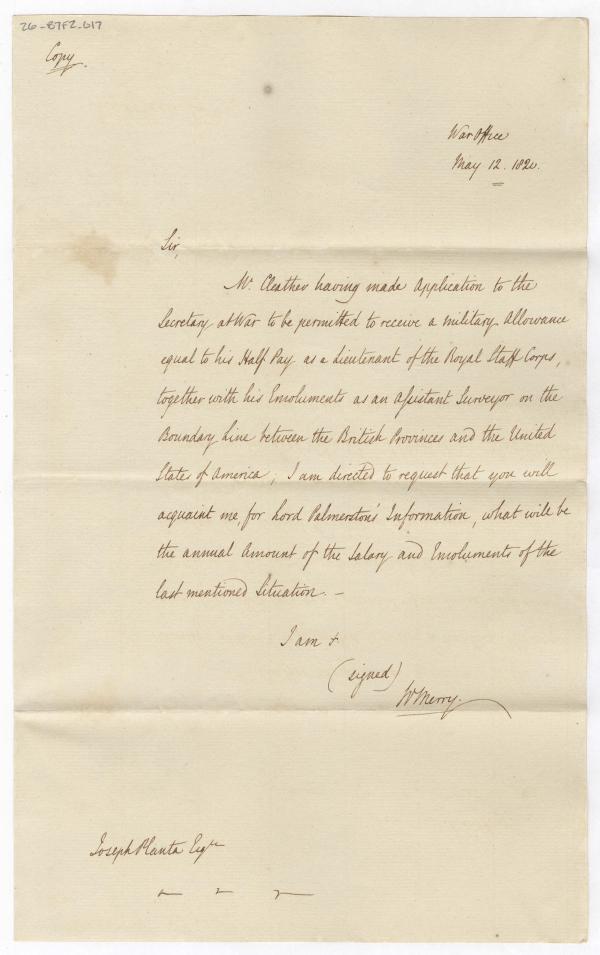 26-87F2-G17
Copy.
War Office
May 12. 1820.
Sir,
Mr. Cleather having made Application to the
Secretary at War to be permitted to receive a military Allowance
equal to his Half Pay as a Lieutenant of the Royal Staff Corps,
together with his Emoluments as an Assistant Surveyor on the
Boundary Line between the British Provinces and the United
States of America; I am directed to request that you will
acquaint me, for Lord Palmerston's Information, what will be
the annual Amount of the Salary and Emoluments of the
last mentioned Situation. –
I am &
(signed)
W Merry.
Joseph Planta Esqre